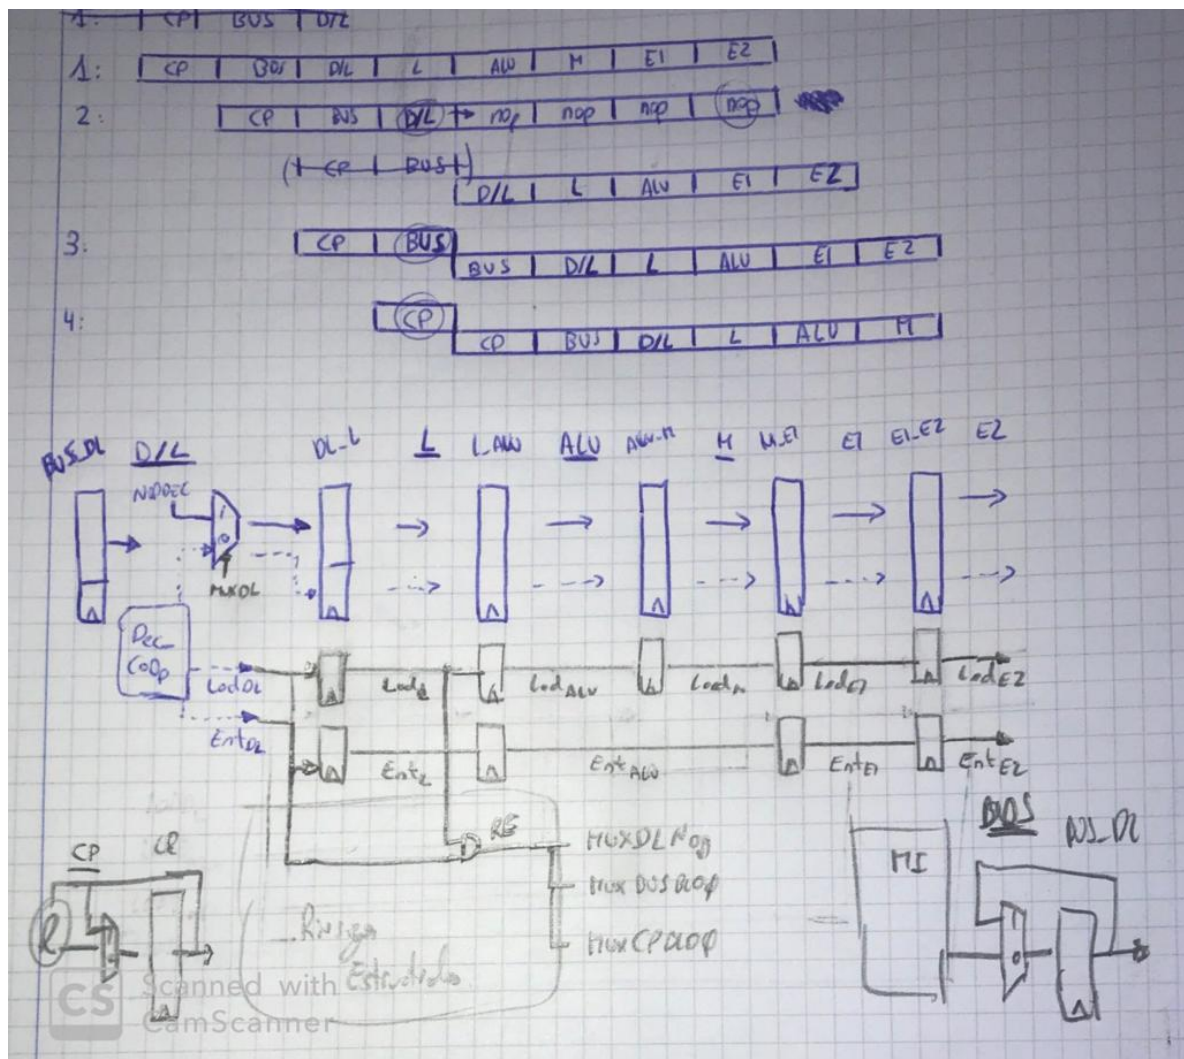 1: CP BUS D/L
1: CP BUS D/L L ALU M E1 E2
2: CP BUS D/L nop nop nop nop
CP BUS
D/L L ALU E1 E2
3: CP BUS
BUS D/L L ALU E1 E2
4: CP
CP BUS D/L L ALU M
BUS_DL D/L DL_L L L_ALU ALU ALU_M M M_E1 E1 E1_E2 E2
1
0
MUXDL
Dec_
CoOp
LoadDL LoadL LoadALU LoadM LoadE1 LoadE2
EntDL EntL EntALU EntE1 EntE2
RE
MUXDLNop
MUXBUSBloq
MUXCPBloq
CP
MI
BUS BUS_DL
0
Riesgo
Estructural
CS Scanned with
CamScanner